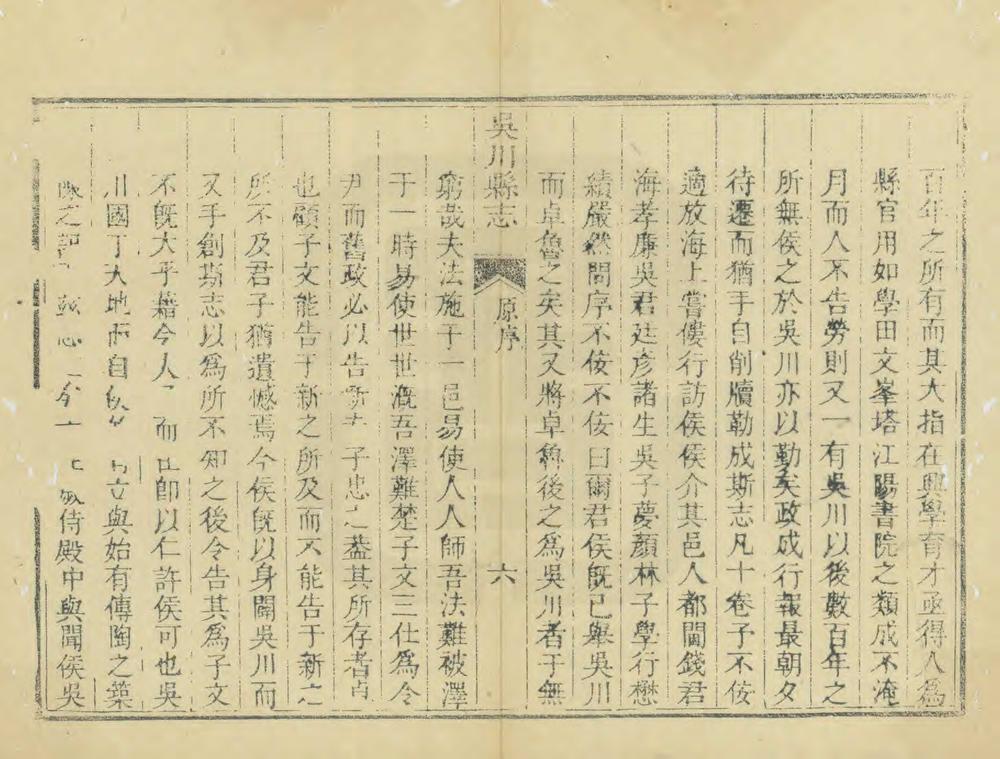 百年之所有而其大指在興學育才亟得人爲
縣官用如學田文峯塔江陽書院之類成不淹
月而人不告勞則又一有吳川以後數百年之
所無侯之於吳川亦以勤矣政成行報最朝夕
待遷而猶手自削牘勒成斯志凡十卷予不佞
適放海上嘗僂行訪侯侯介其邑人都閫錢君
海孝廉吳君廷彥諸生吳子夢顏林子學行懋
績嚴然問序不佞不佞曰爾君侯旣已舉吳川
而卓魯之矣其又將卓魯後之爲吳川者于無
吳川縣志
原序
六
窮哉夫法施于一邑易使人人師吾法難被澤
于一時易使世世漑吾澤難楚子文三仕爲令
尹而舊政必以告新 子忠之葢其所存者
也顧子文能告于新之所及而不能告于新之
所不及君子猶遺憾焉今侯旣以身闢吳川而
又手創斯志以爲所不知之後令告其爲子文
不旣大乎藉令人 而 卽以仁許侯可也吳
川國丁大地 自 立與始有傅陶之築
之記 侍殿中與聞侯吳